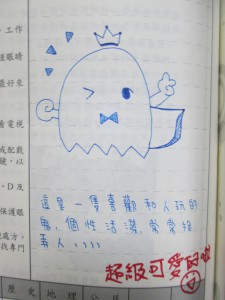 、工作
護眼睛
看電視
或配戴
號，以
、D及
保護眼
處方，
找專門
這是一隻喜歡和人玩的
鬼,個性活潑,常常捉
弄人,,,,
超級可愛的啦
歷史地理公民